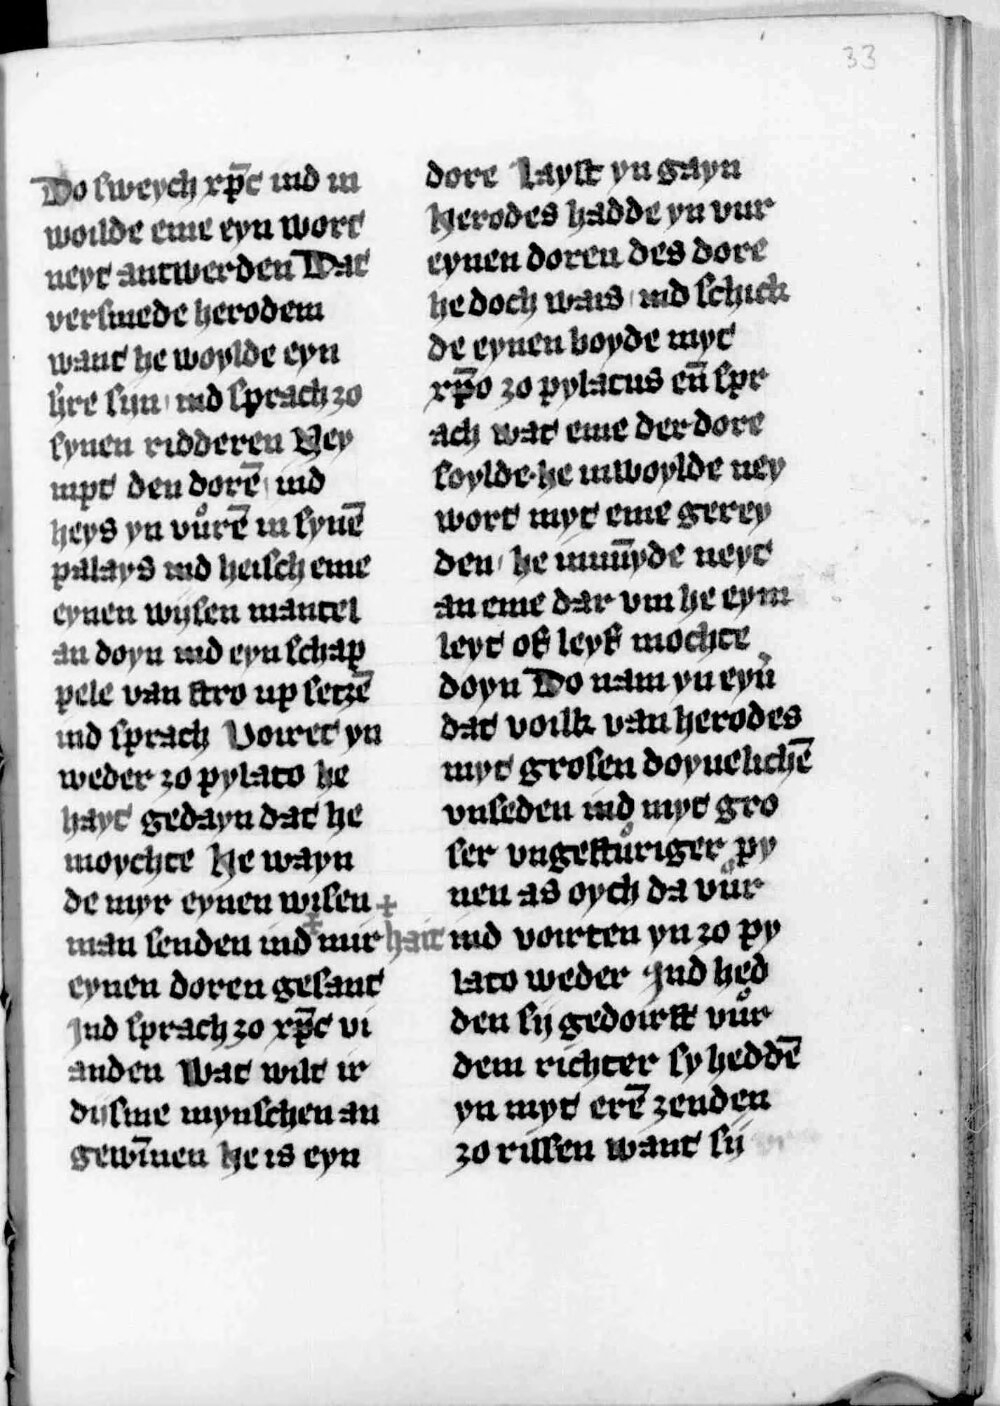 33
Do sweych xp̄c ind in
woilde eme eyn wort
neyt antwerden Dat
versmede herodem
want he woylde eyn
h̓re sijn ind sprach zo
synen ridderen Ney
mpt den dorē ind
heys yn vuͦrē in synē
palays ind heisch eme
eynen wijsen mantel
an doyn ind eyn schap
pele van stro up setzē
ind sprach Voiret yn
weder zo pylato he
hayt gedayn dat he
moychte He wayn
de myr eynen wisen ÷
man senden ind mir hait
eynen doren gesant
Ind sprach zo xp̄c vi
anden Wat wilt ir
dijsme mynschen an
gewīnen he is eyn
dore Layst yn gayn
Herodes hadde yn vur
eynen doren des dore
he doch wais ind schick
de eynen boyde myt
xp̄o zo pylatus en̄ spr
ach wat eme der dore
soylde he inwoylde ney
wort myt eme gerey
den he inuūyde neyt
an eme dar vm he eym
leyt of leyf mochte
doyn Do nam yn eyn̓
dat voilk van herodes
myt grosen doyuelichē
vnseden ind myt gro
ser vngestuͦriger py
nen as oych da vuͦr
ind voirten yn zo py
lato weder Ind hed
den sij gedoirst vuͦr
dem richter sy heddē
yn myt erē zenden
zo rissen want sij